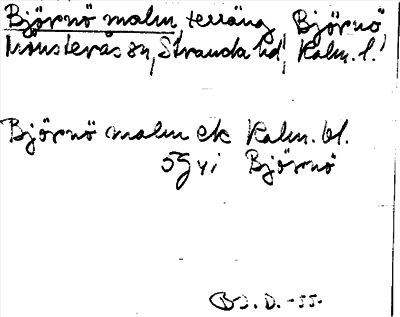 Björnö malm, terräng, Björnö,
Mönsterås sn, Stranda hd, Kalm. l.
Björnö malm ek Kalm. bl.
5G yi Björnö
B. D. -55.